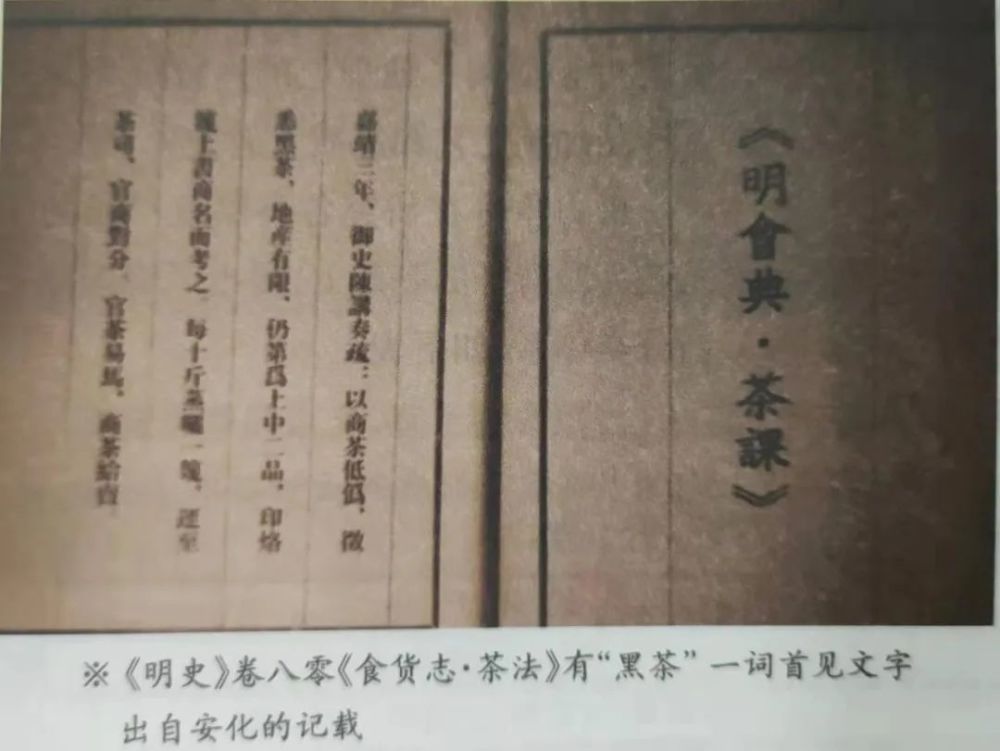 《明會典·茶課》
嘉靖三年、御史陳講奏疏：以商茶低僞、徵
悉黑茶、地產有限、仍第爲上中二品，印烙
上書商名而考之。每十斤蒸曬一，運至
茶司、官商對分、官茶易馬、商茶給賣
※《明史》卷八零《食货志·茶法》有“黑茶”一词首见文字
出自安化的记载